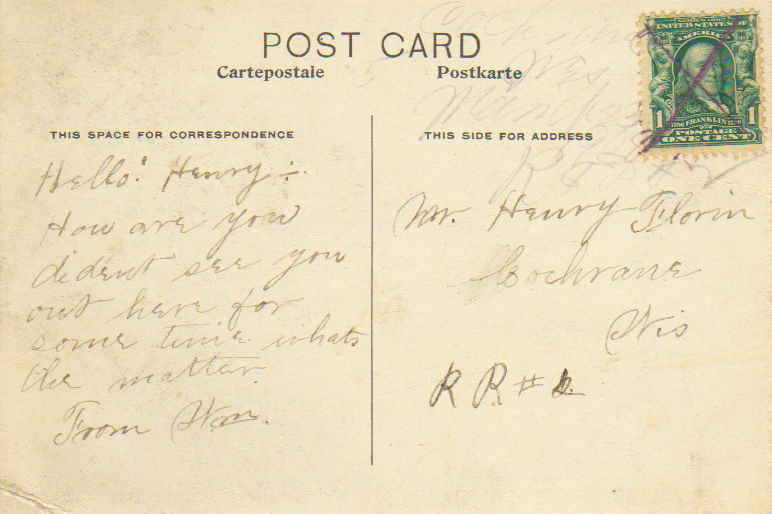 POST CARD
Cartepostale
Postkarte
UNITED STATES OF
AMERICA
1
1
POSTAGE
ONE CENT
THIS SPACE FOR CORRESPONDENCE
THIS SIDE FOR ADDRESS
Hello! Henry:-
How are you
dident see you
out here for
some time whats
the matter.
From Wm.
Mr. Henry Florin
Cochrane
Wis
R R #